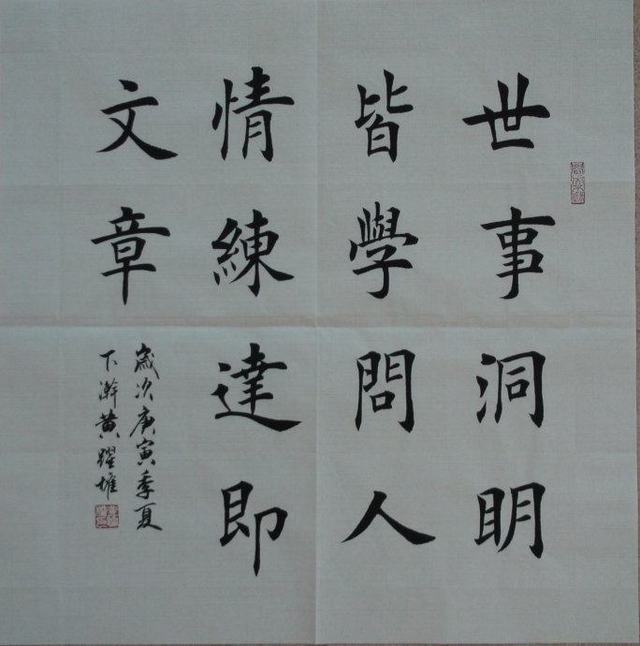 世事洞明
皆學問人
情練達即
文章
歲次庚寅季夏
下澣黄躍堆